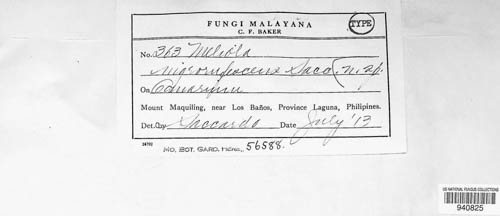 FUNGI MALAYANA
C. F. BAKER
TYPE
No. 363 Meliola
Sacc. (n. sp.
On
Mount Maquiling, near Los Baños, Province Laguna, Philipines.
Det. by Saccardo Date July '13
MO. BOT. GARD. Herb. 56588.
US NATIONAL FUNGUS COLLECTIONS
940825